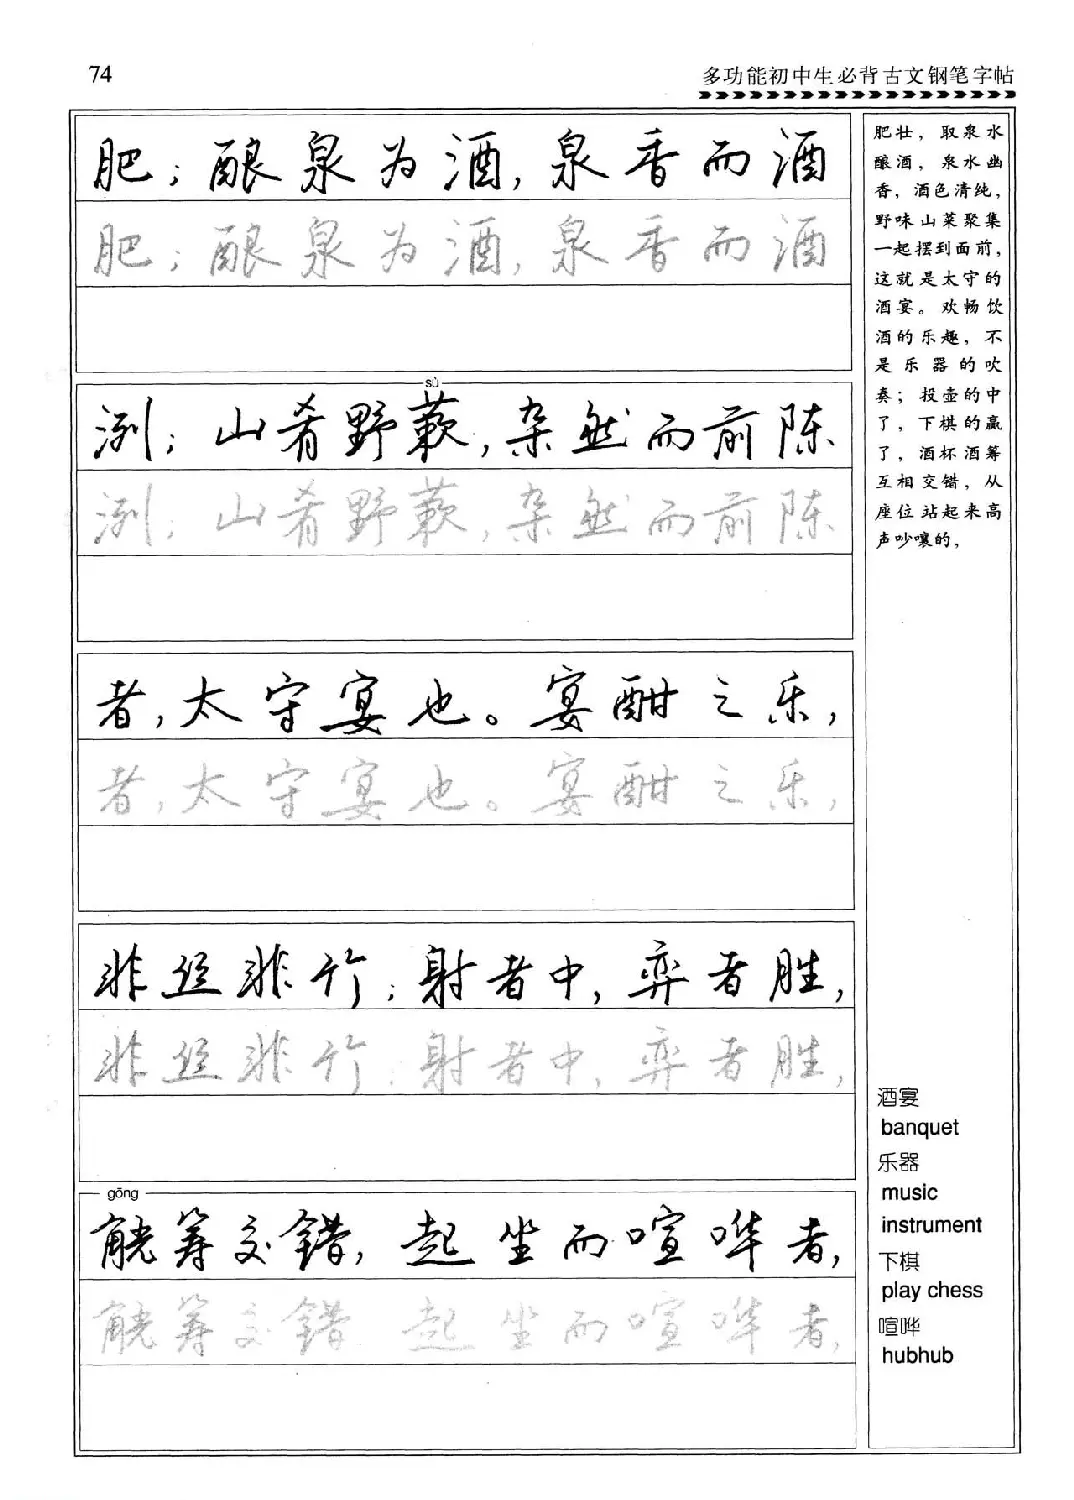 74
多功能初中生必背古文钢笔字帖
肥；酿泉为酒，泉香而酒
肥；酿泉为酒，泉香而酒
sù
洌；山肴野蔌，杂然而前陈
洌；山肴野蔌，杂然而前陈
者，太守宴也。宴酣之乐，
者，太守宴也。宴酣之乐，
非丝非竹；射者中，弈者胜，
非丝非竹；射者中，弈者胜，
gōng
觥筹交错，起坐而喧哗者，
觥筹交错 起坐而喧哗者，
肥壮，取泉水
酿酒，泉水幽
香，酒色清纯，
野味山菜聚集
一起摆到面前，
这就是太守的
酒宴。欢畅饮
酒的乐趣，不
是乐器的吹
奏；投壶的中
了，下棋的赢
了，酒杯酒筹
互相交错，从
座位站起来高
声吵嚷的，
酒宴
banquet
乐器
music
instrument
下棋
play chess
喧哗
hubhub